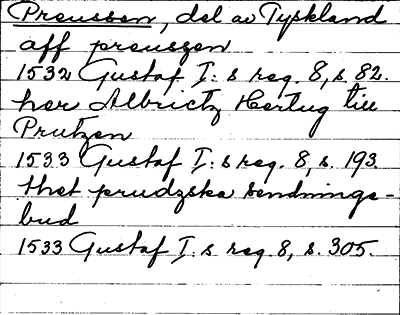 Preussen, del av Tyskland
aff preuszen
1532 Gustaf I: s reg. 8, s. 82.
her Albrictz Hertug till
Prutzen
1533 Gustaf I: s reg. 8, s. 193.
thet prudzska sendninge-
bud
1533 Gustaf I: s reg. 8, s. 305.